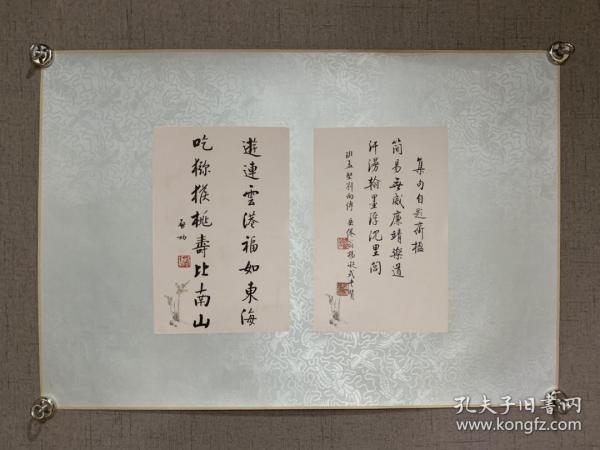 集句自题斋楹
简易无威廉靖乐道
汗漫翰墨浮沉里闾
遊連雲港福如東海
吃猕猴桃壽比南山
启功
孔夫子旧书网
www.kongfz.com